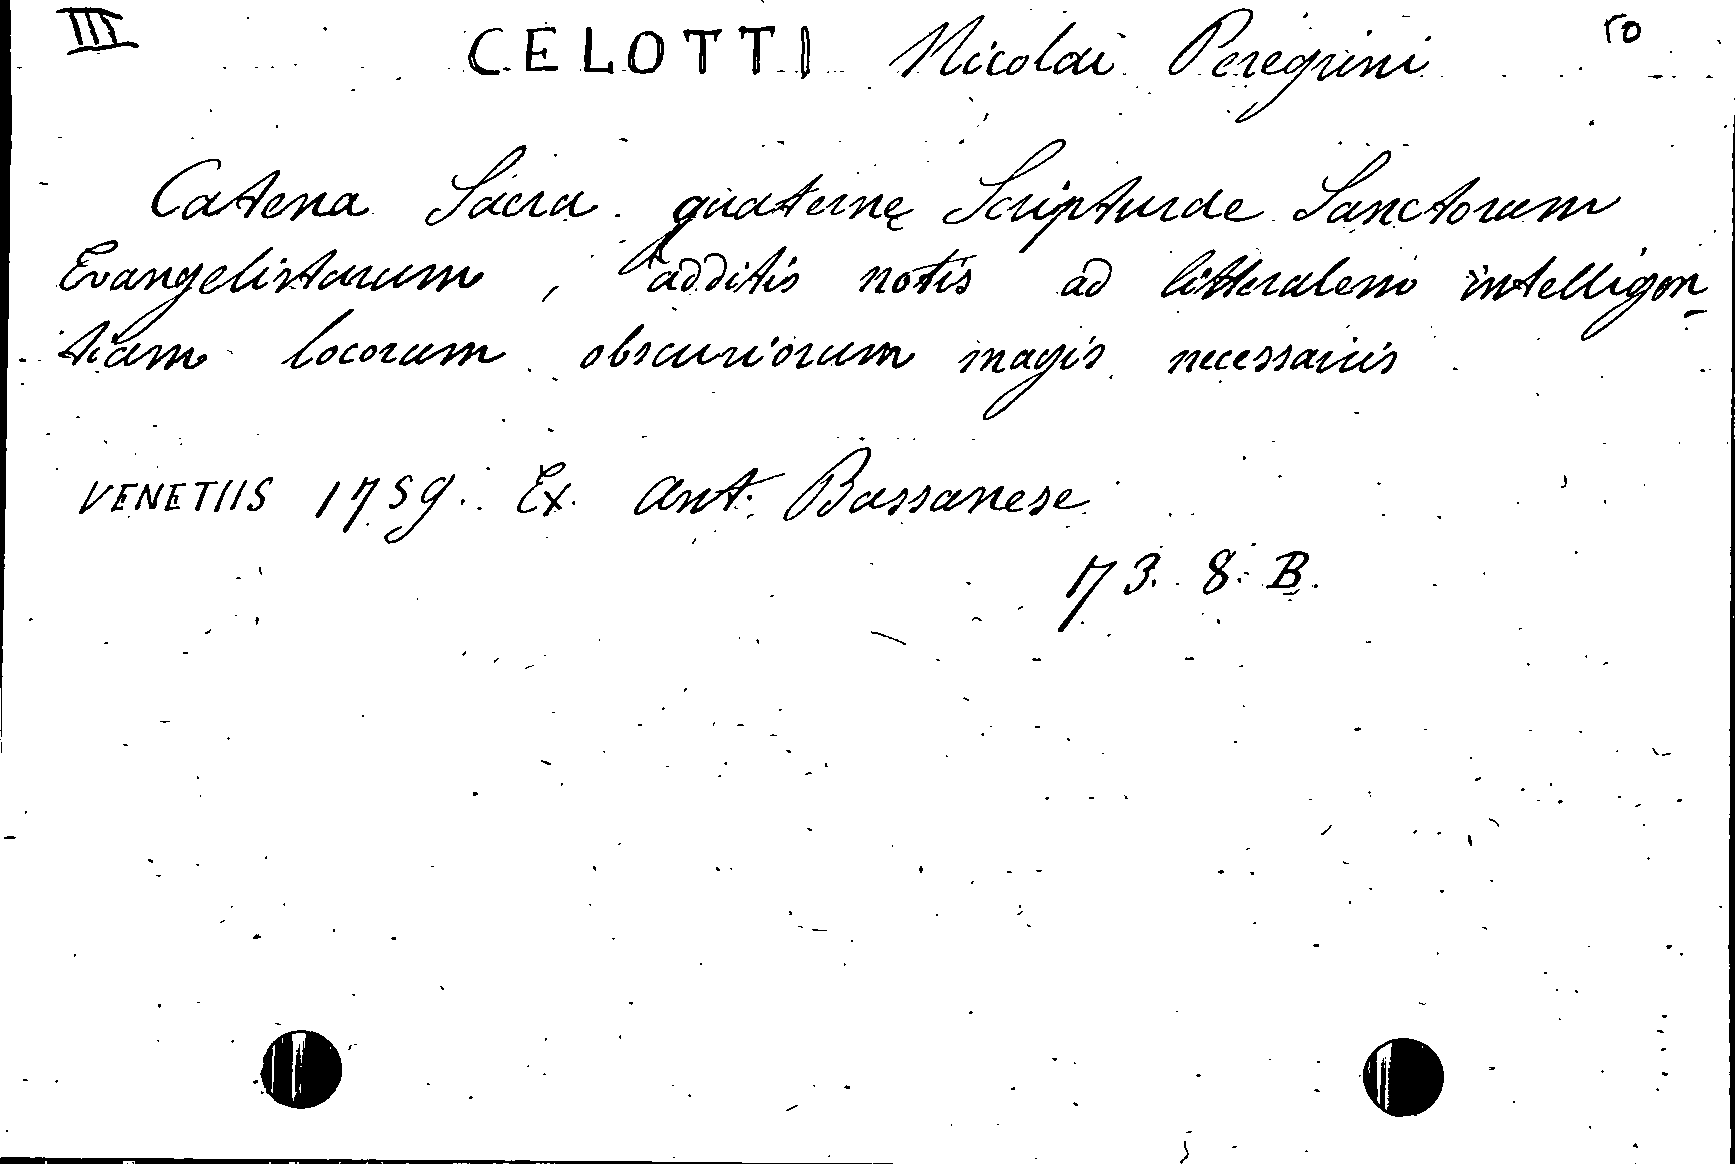 III CELOTTI Nicolai Peregrini 50
Catena Sacra quaternę Scripturae Sanctorum
Evangelistarum, additis notis ad litteralem intelligen-
tiam locorum obscuriorum magis necessariis
VENETIIS 1759. Ex. Ant. Bassanese
173. 8. B.